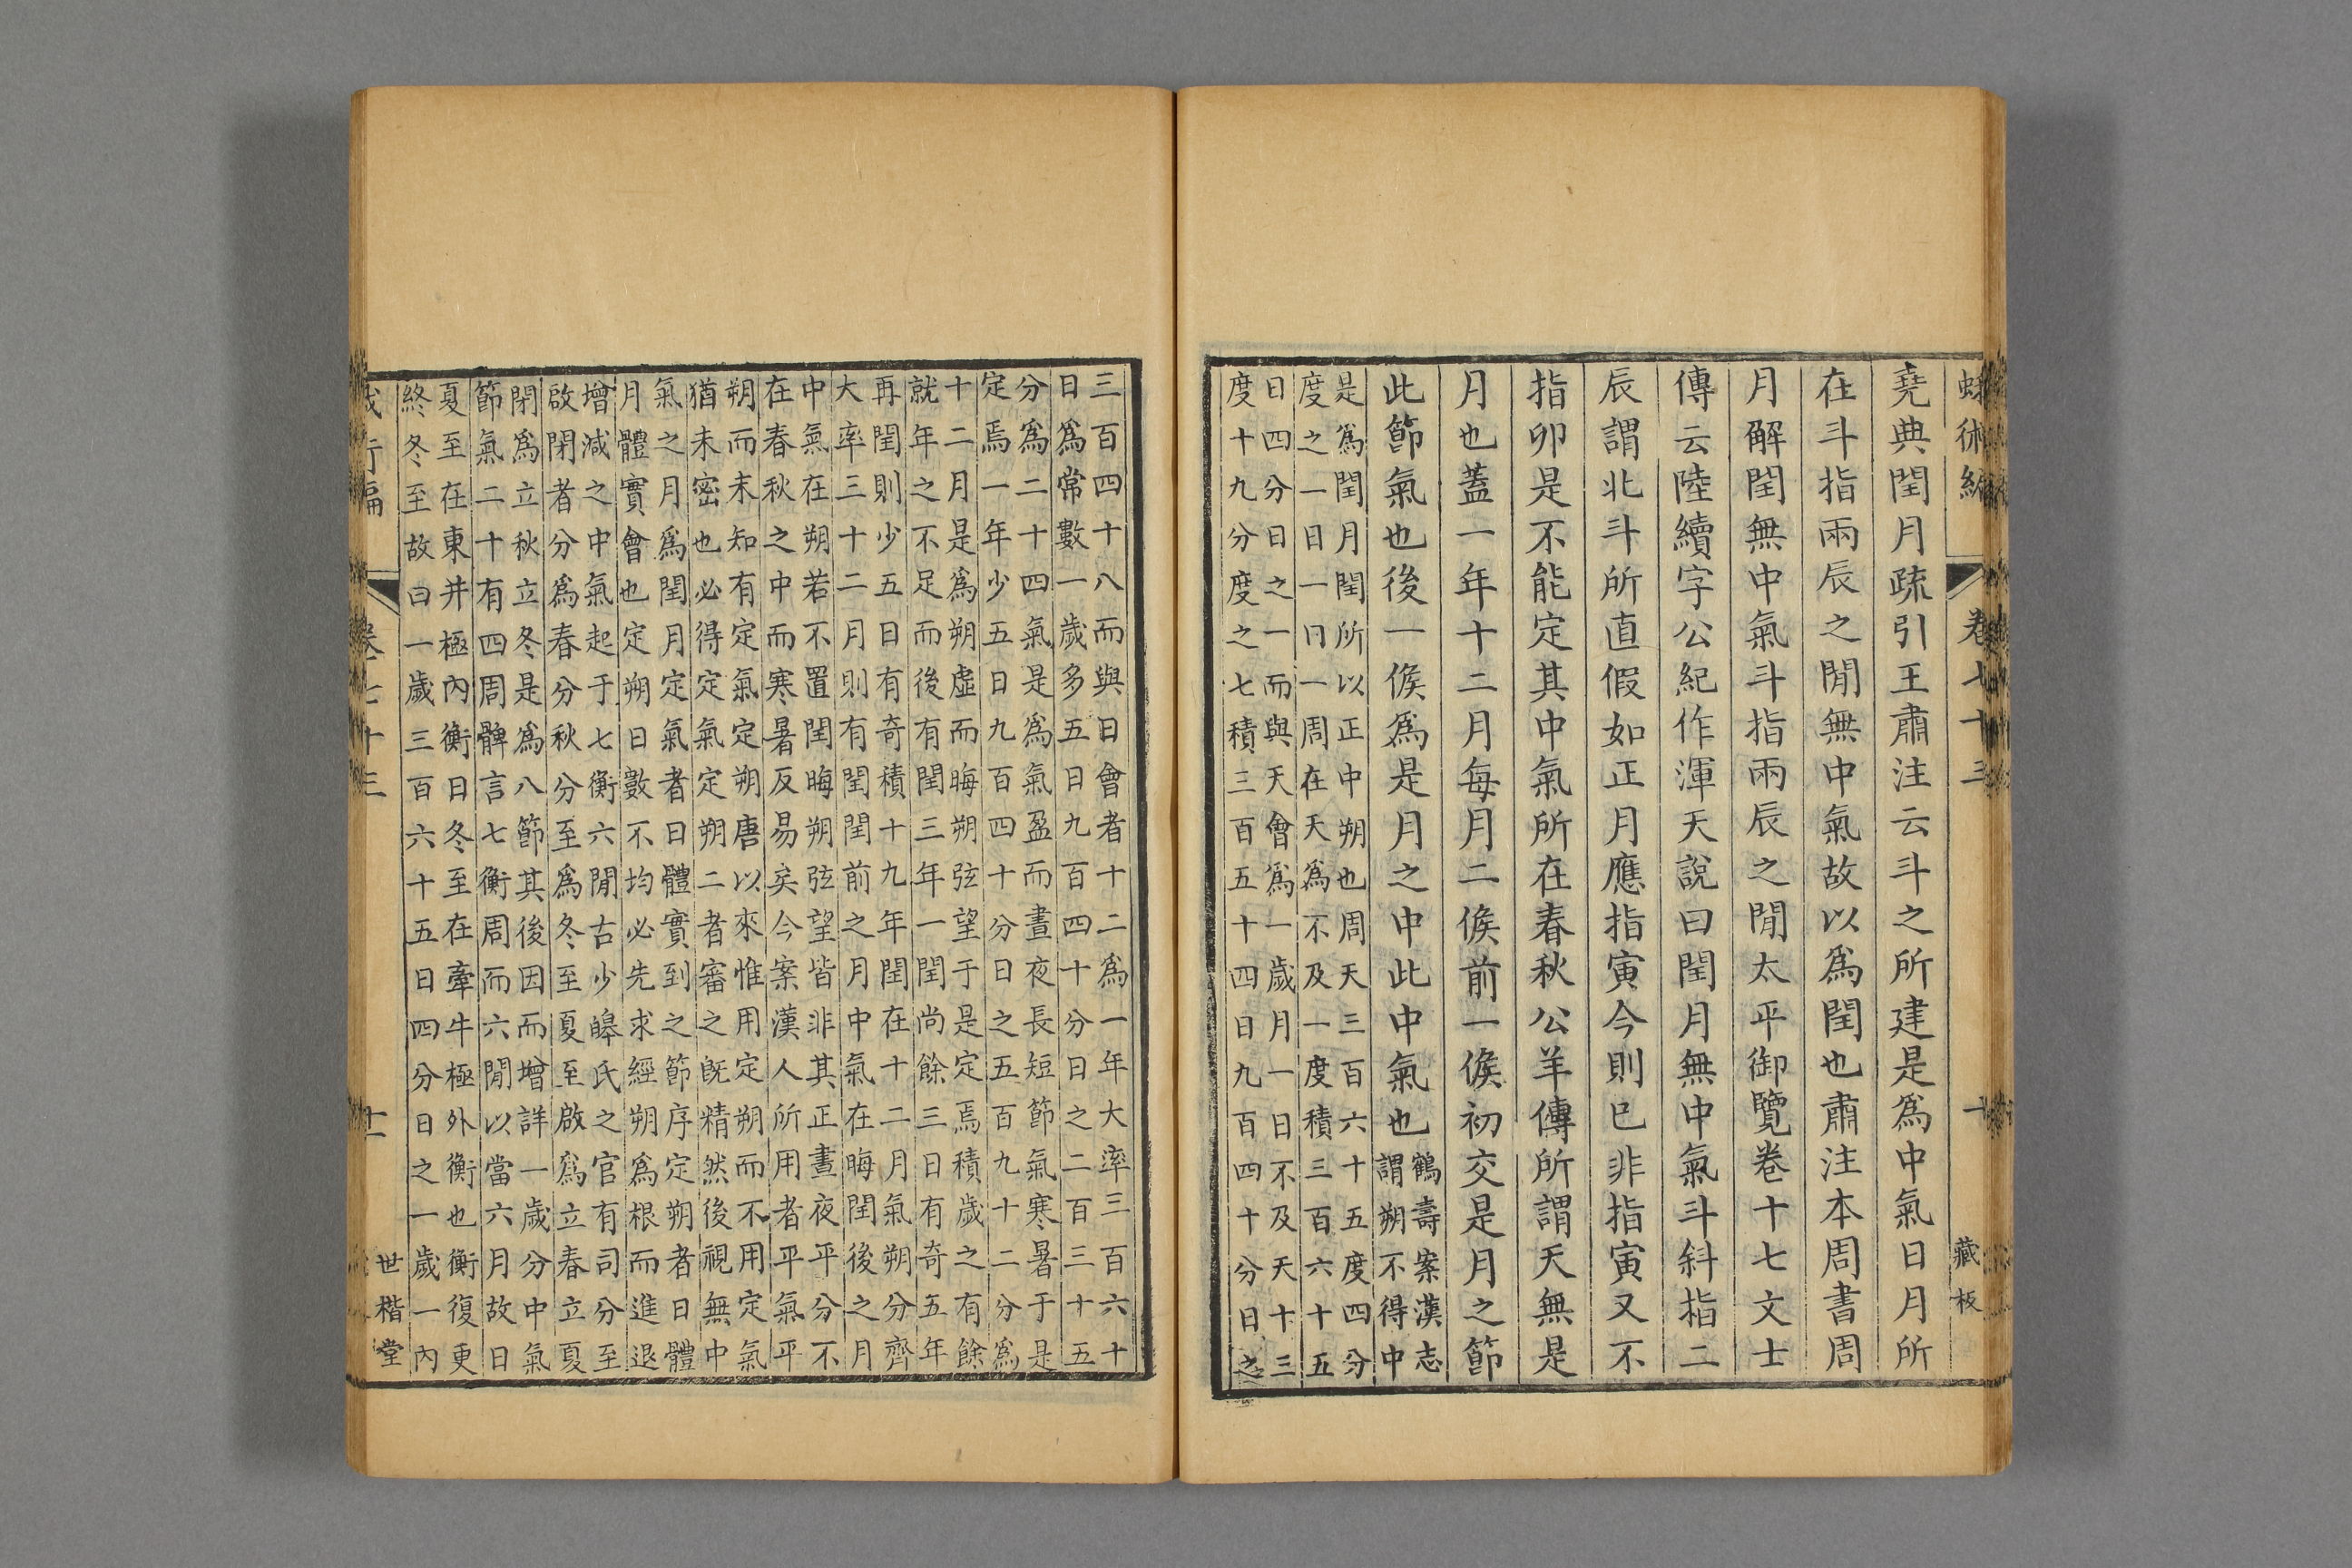 卷七十三
一
藏板
堯典閏月疏引王肅注云斗之所建是爲中氣日月所
在斗指兩辰之閒無中氣故以爲閏也肅注本周書周
月解閏無中氣斗指兩辰之閒太平御覽卷十七文士
傳云陸績字公紀作渾天說曰閏月無中氣斗斜指二
辰謂北斗所直假如正月應指寅今則已非指寅又不
指卯是不能定其中氣所在春秋公羊傳所謂天無是
月也蓋一年十二月每月二候前一候初交是月之節
此節氣也後一候爲是月之中此中氣也
鶴壽案漢志
謂朔不得中
是爲閏月閏所以正中朔也周天三百六十五度四分
度之一日一日一周在天爲不及一度積三百六十五
日四分日之一而與天會爲一歲月一日不及天十三
度十九分度之七積三百五十四日九百四十分日之
三百四十八而與日會者十二爲一年大率三百六十
日爲常數一歲多五日九百四十分日之二百三十五
分爲二十四氣是爲氣盈而晝夜長短節氣寒暑于是
定焉一年少五日九百四十分日之五百九十二分爲
十二月是爲朔虛而晦朔弦望于是定焉積歲之有餘
就年之不足而後有閏三年一閏尚餘三日有奇五年
再閏則少五日有奇積十九年閏在十二月氣朔分齊
大率三十二月則有閏閏前之月中氣在晦閏後之月
中氣在朔若不置閏晦朔弦望皆非其正晝夜平分不
在春秋之中而寒暑反易矣今案漢人所用者平氣平
朔而未知有定氣定朔唐以來惟用定朔而不用定氣
猶未密也必得定氣定朔二者審之旣精然後視無中
氣之月爲閏月定氣者日體實到之節序定朔者日體
月體實會也定朔日數不均必先求經朔爲根而進退
增減之中氣起于七衡六閒古少皞氏之官有司分至
啟閉者分爲春分秋分至爲冬至夏至啟爲立春立夏
閉爲立秋立冬是爲八節其後因而增詳一歲分中氣
節氣二十有四周髀言七衡周而六閒以當六月故日
夏至在東井極內衡日冬至在牽牛極外衡也衡復更
終冬至故曰一歲三百六十五日四分日之一歲一內
世楷堂